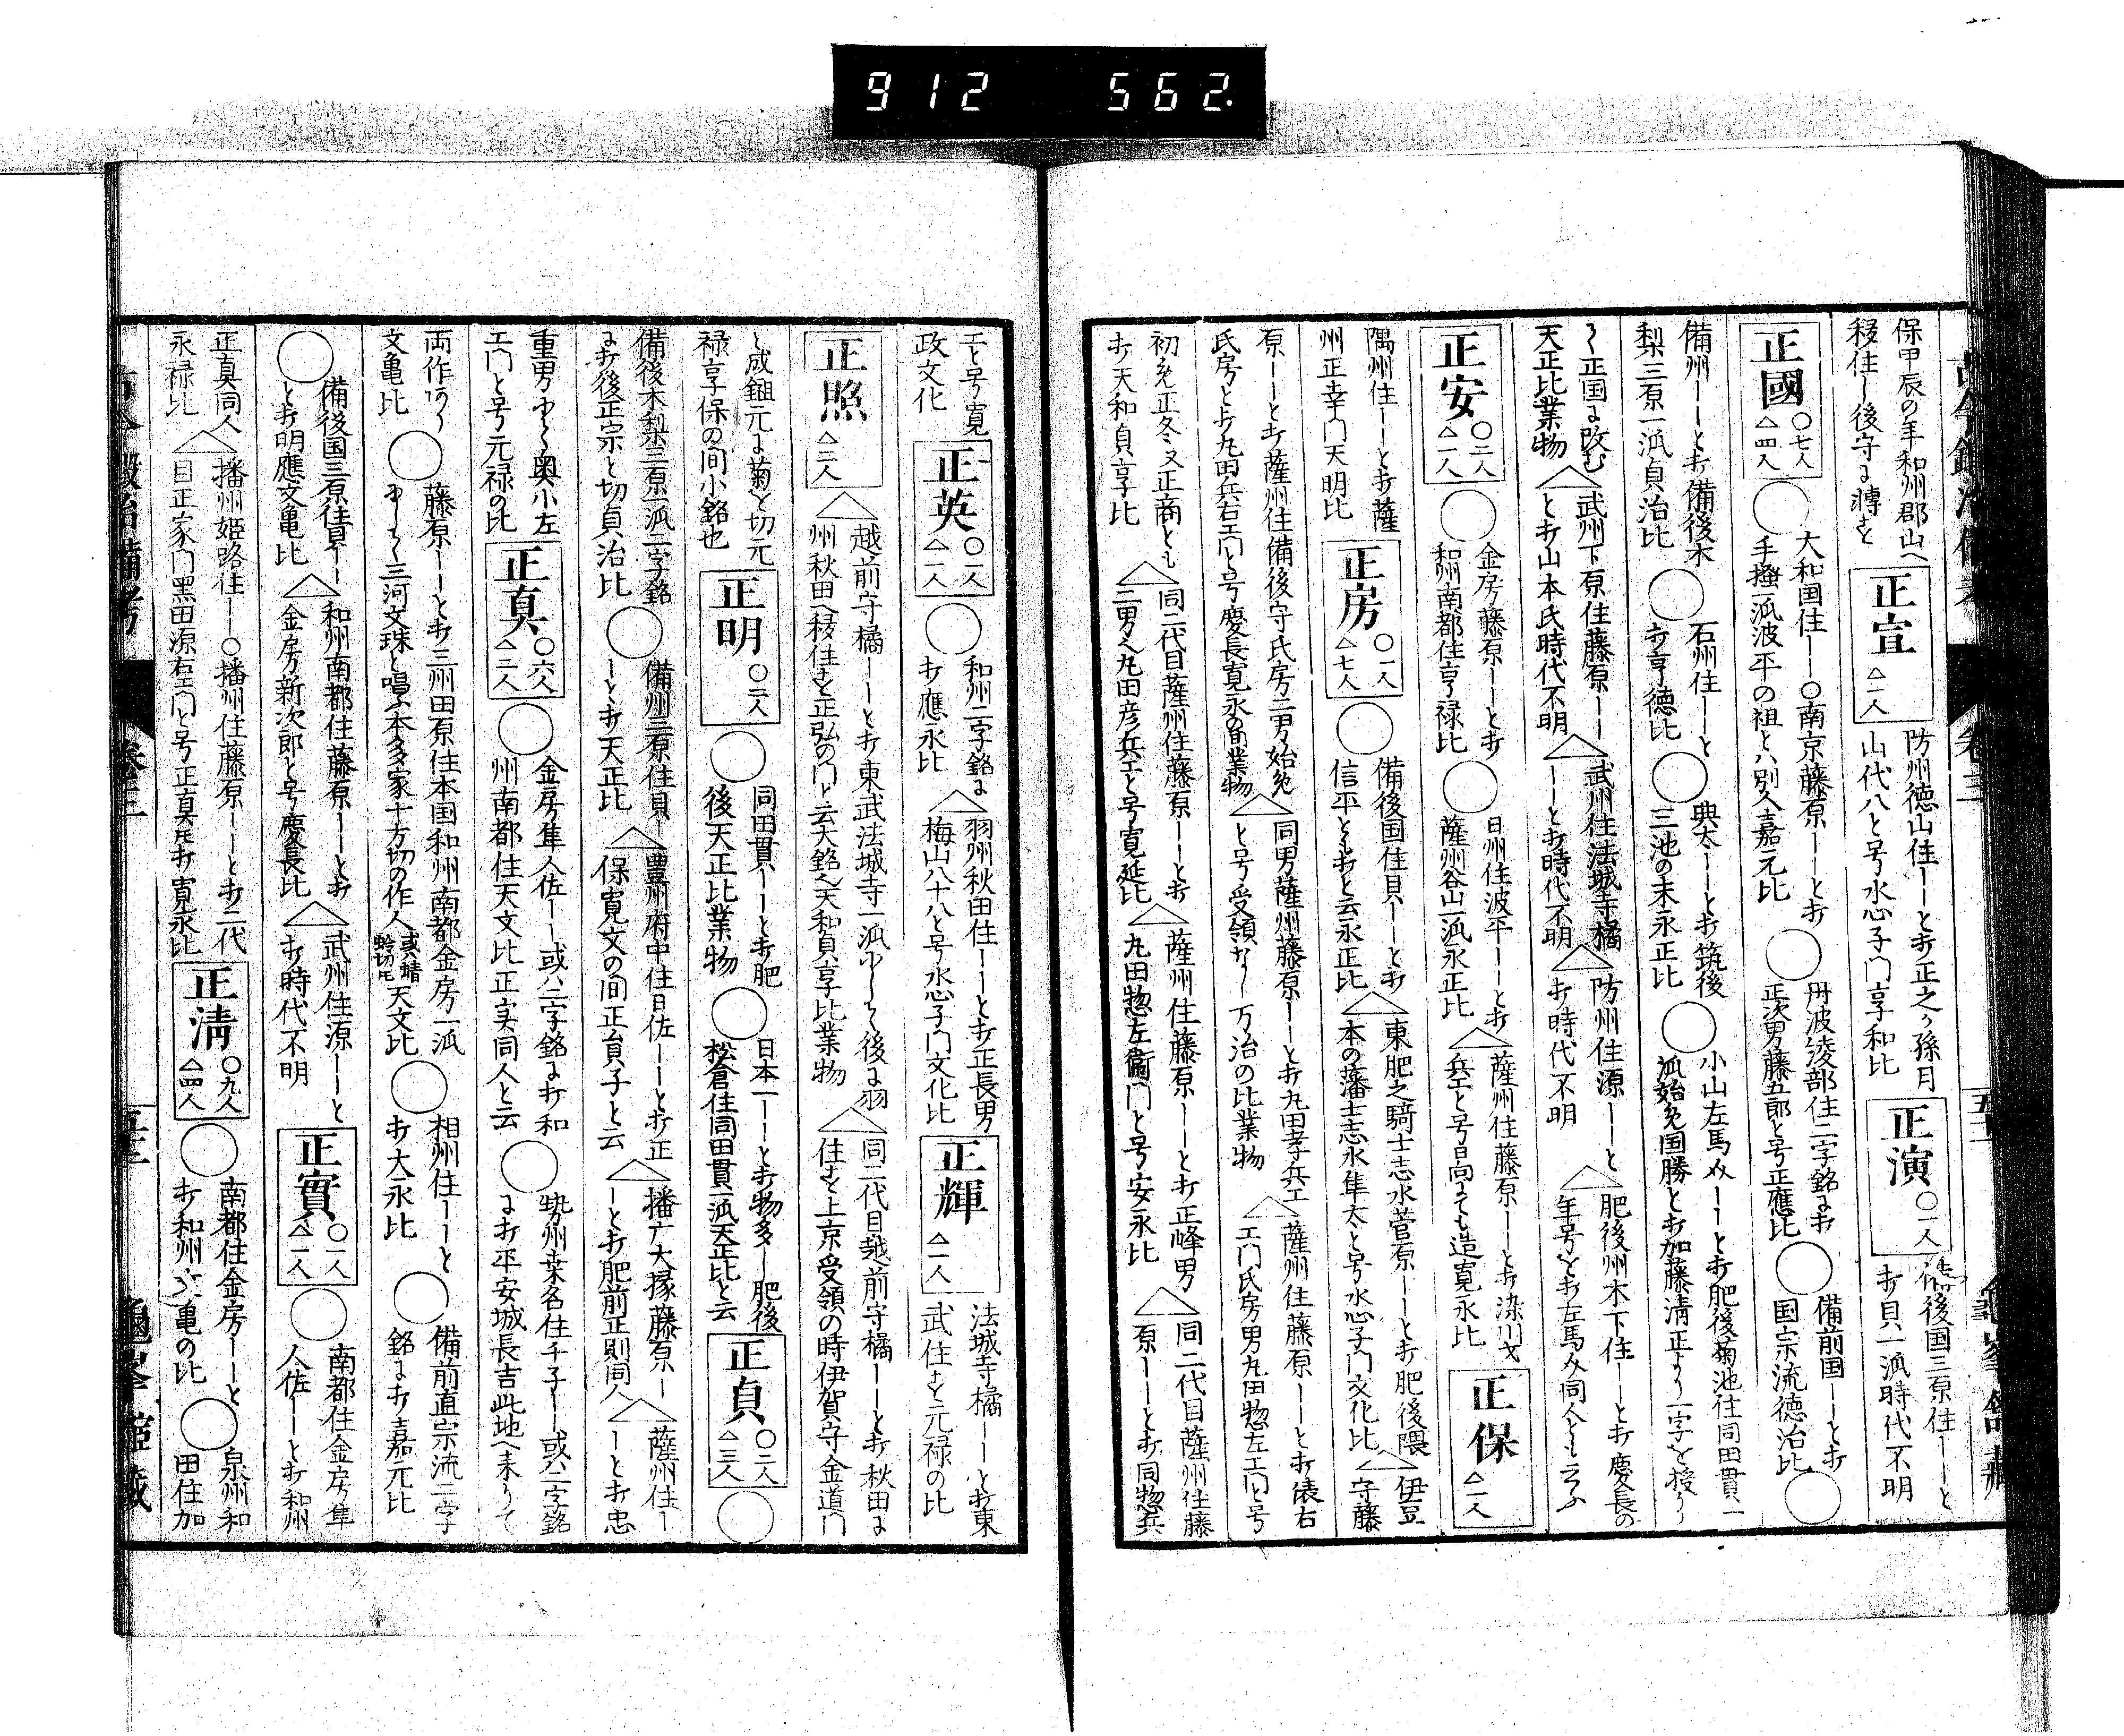 912 562.
保甲辰の年和州郡山へ
移住し後守に轉ずと
正宣 △一人
防州徳山住——と打正之孫月
山代八と号水心子門享和比
正演 〇一人
備後国三原住——と
打貝一派時代不明
正國 〇七人 △四人
大和国住——〇南京藤原——と打
手掻一派波平の祖とハ別人嘉元比
丹波綾部住二字銘に打
正次男藤五郎と号正應比
備前国——と打
国宗流徳治比
備州——と打備後木
梨三原一派貞治比
石州住——と
打享徳比
典太——と打筑後
三池の末永正比
小山左馬介——と打肥後菊池住同田貫一
派始免国勝と打加藤清正より一字を授り
て正国に改む
天正比業物
武州下原住藤原——
と打山本氏時代不明
武州住法城寺橘
——と打時代不明
防州住源——と
打時代不明
肥後州木下住——と打慶長の
年号を打左馬介同人とも云ふ
正安 〇二人 △一人
金房藤原——と打
和州南都住享禄比
日州住波平——と打
薩州谷山一派永正比
薩州住藤原——と打染川戈
兵エと号日向にても造寛永比
正保 △一人
隅州住——と打薩
州正幸門天明比
正房 〇一人 △七人
備後国住貝——と打
信平とも打と云永正比
東肥之騎士志水菅原——と打肥後隈
本の藩士志水隼太と号水心子門文化比
伊豆
守藤
原——と打薩州住備後守氏房二男始免
氏房と打丸田兵右エ門と号慶長寛永の間業物
同男薩州藤原——と打丸田孝兵エ
と号受領なし万治の比業物
薩州住藤原——と打俵右
エ門氏房男丸田惣左エ門と号
初免正冬又正商とも
打天和貞享比
同二代目薩州住藤原——と打
二男丸田彦兵エと号寛延比
薩州住藤原——と打正峰男
丸田惣左衛門と号安永比
同二代目薩州住藤
原——と打同惣兵
エと号寛
政文化
正英 〇一人 △一人
和州二字銘に
打應永比
羽州秋田住——と打正長男
梅山八十八と号水心子門文化比
正輝 △一人
法城寺橘——と打東
武住すと元禄の比
正照 △二人
越前守橘——と打東武法城寺一派にして後に羽
州秋田へ移住すと正弘の門と云大銘天和貞享比業物
同二代目越前守橘——と打秋田に
住すと上京受領の時伊賀守金道門
と成鎺元に菊を切元
禄享保の間小銘也
正明 〇二人
同田貫——と打肥
後天正比業物
日本一——と打物多し肥後
松倉住同田貫一派天正比と云
正貞 〇二人 △三人
備後木梨三原一派二字銘
に打後正宗と切貞治比
備州三原住貝
——と打天正比
豊州府中住日佐——と打正
保寛文の間正貞子と云
播广大掾藤原—
—と打肥前正則同人
薩州住—
—と打忠
重男にして奥小左
エ門と号元禄の比
正真 〇六人 △二人
金房隼人佐——或ハ二字銘に打和
州南都住天文比正実同人と云
勢州桑名住千子——或ハ二字銘
に打平安城長吉此地へ来りて
両作有り
文亀比
藤原——と打三州田原住本国和州南都金房一派
にして三河文珠と唱ふ本多家十方切の作人或ハ蜻蛉切とも天文比
相州住——と
打大永比
備前直宗流二字
銘に打嘉元比
備後国三原住貝——
と打明應文亀比
和州南都住藤原——と打
金房新次郎と号慶長比
武州住源——と
打時代不明
正實 〇一人 △一人
南都住金房隼
人佐——と打和州
正真同人
永禄比
播州姫路住——〇播州住藤原——と打二代
目正家門黒田源右エ門と号正真とも打寛永比
正清 〇九人 △四人
南都住金房——と
打和州文亀の比
泉州和
田住加